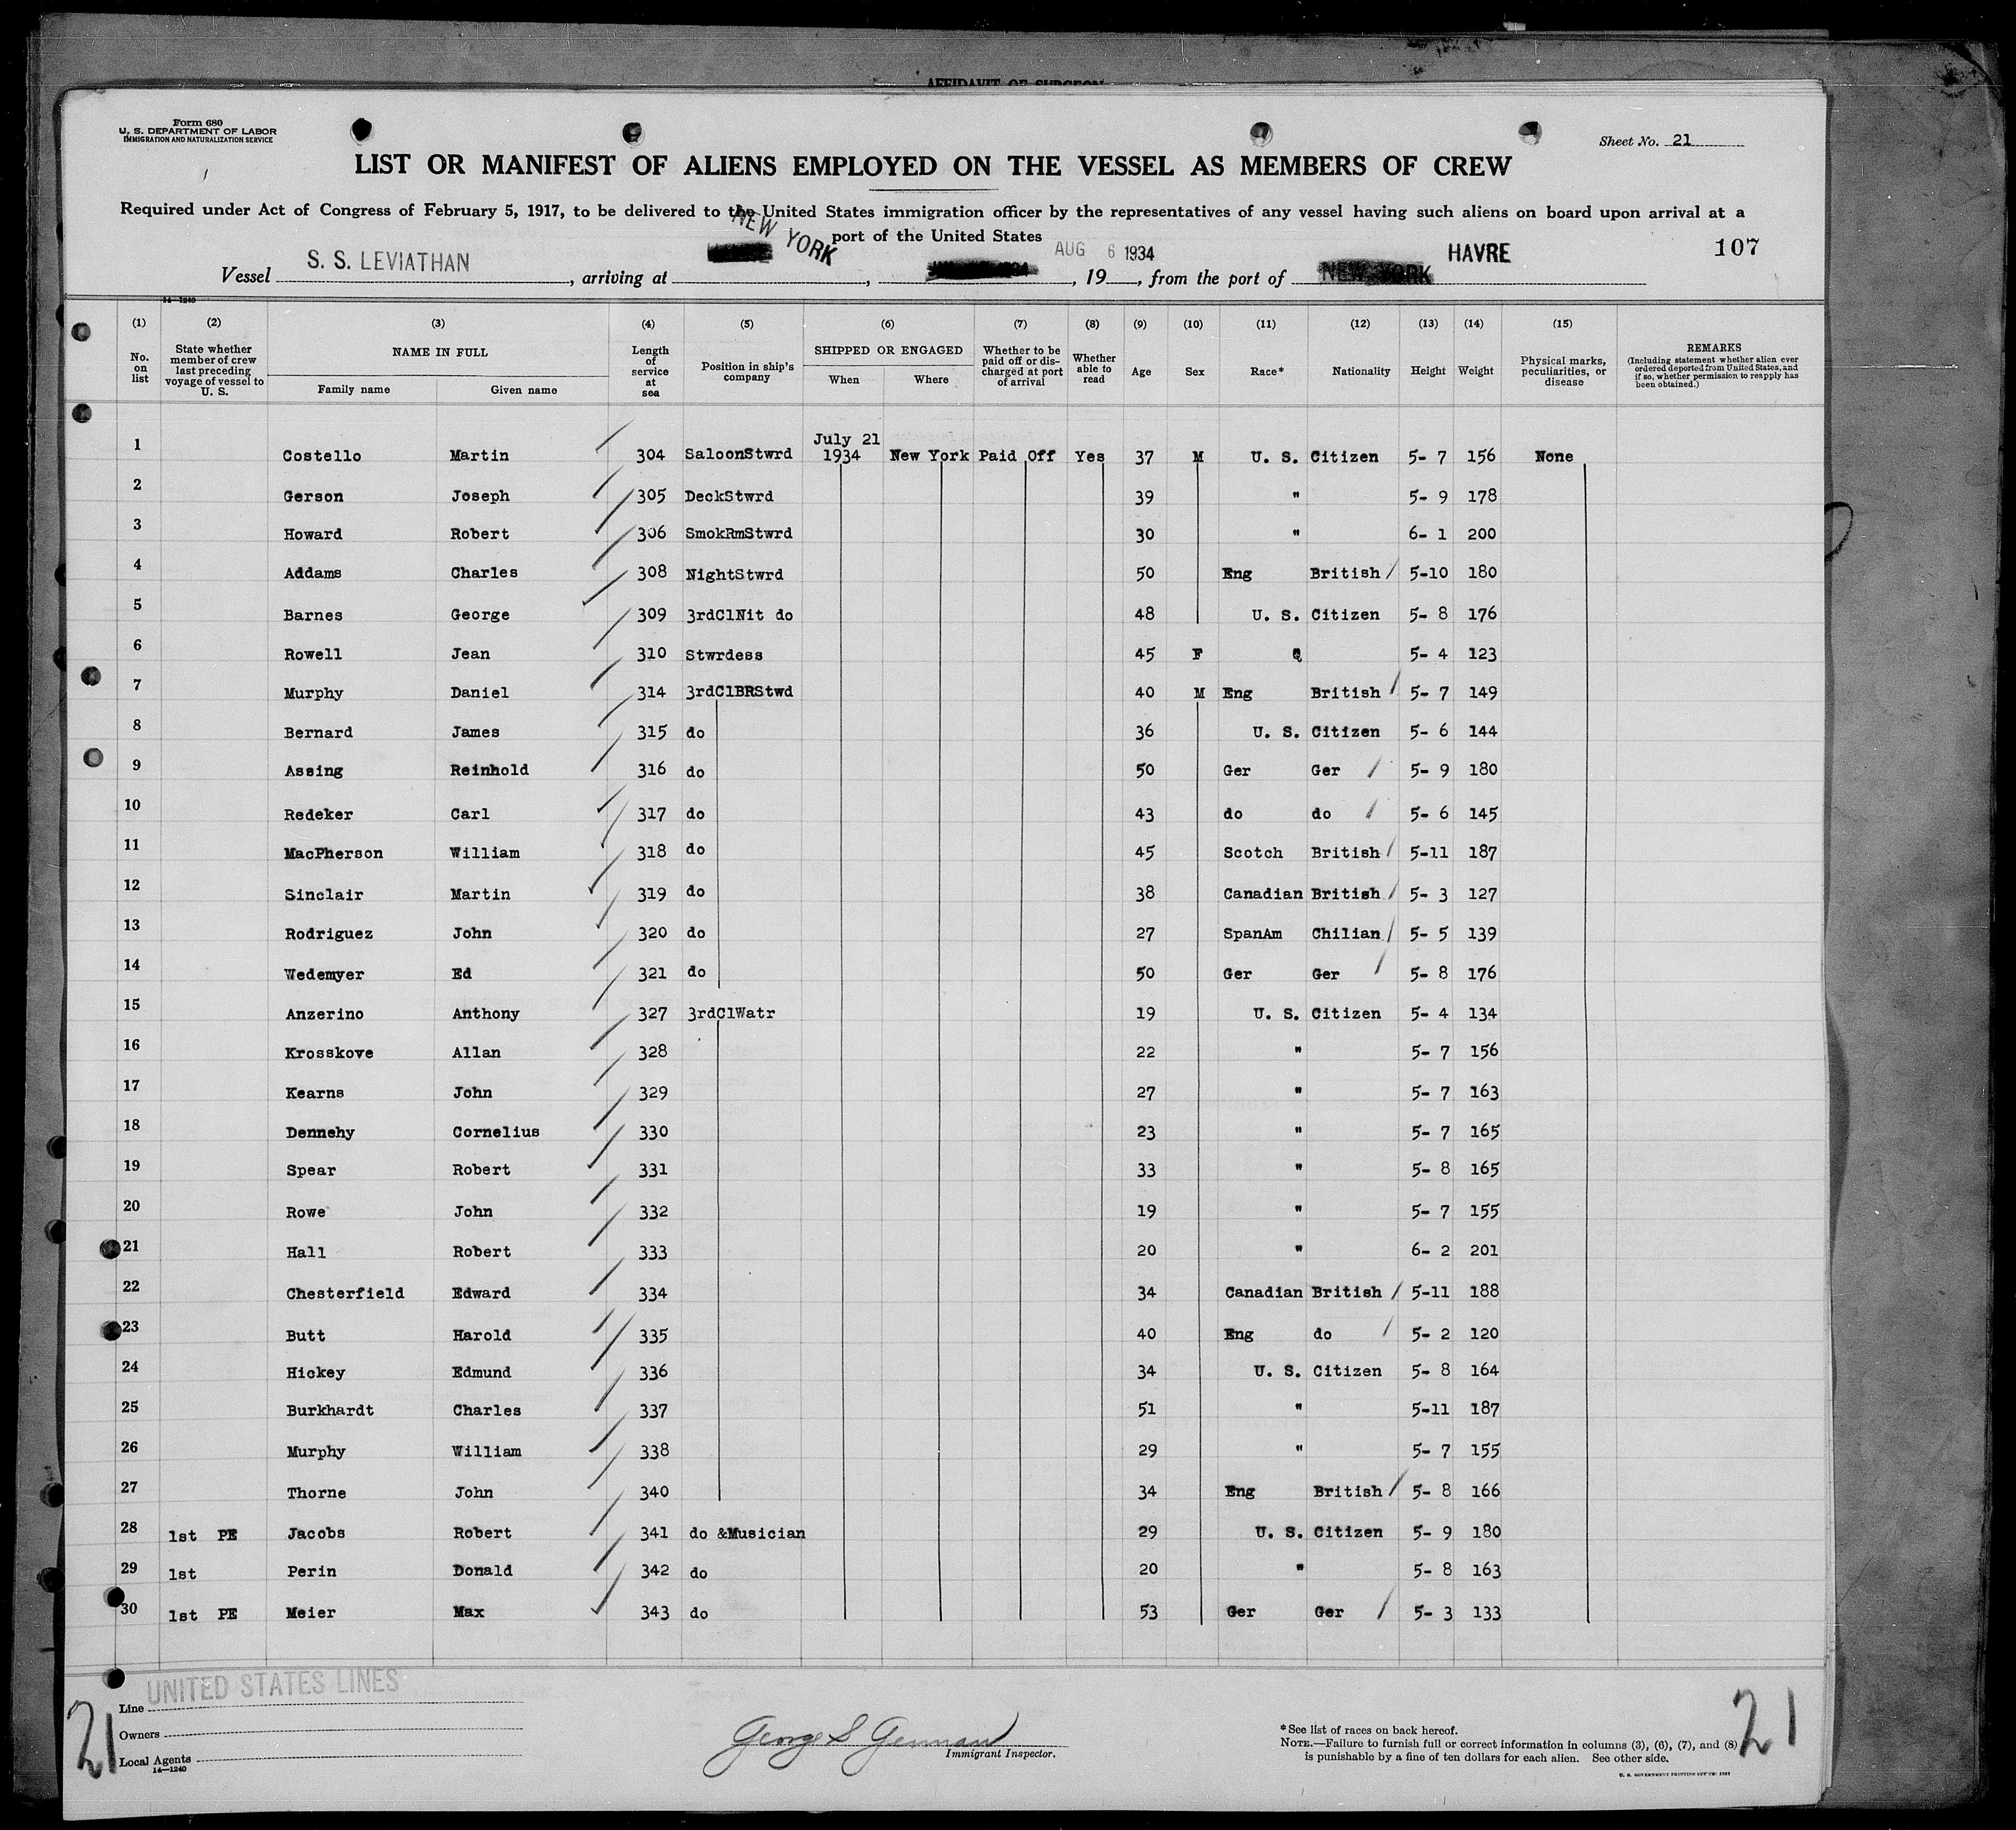 AFFIDAVIT OF SURGEON
Form 680
U. S. DEPARTMENT OF LABOR
IMMIGRATION AND NATURALIZATION SERVICE
Sheet No. 21
LIST OR MANIFEST OF ALIENS EMPLOYED ON THE VESSEL AS MEMBERS OF CREW
Required under Act of Congress of February 5, 1917, to be delivered to the United States immigration officer by the representatives of any vessel having such aliens on board upon arrival at a
port of the United States
107
Vessel S. S. LEVIATHAN, arriving at NEW YORK, AUG 6 1934, 19, from the port of NEW YORK HAVRE
14—1240
(1) (2) (3) (4) (5) (6) (7) (8) (9) (10) (11) (12) (13) (14) (15)
No. on list State whether member of crew last preceding voyage of vessel to U. S. NAME IN FULL Family name Given name Length of service at sea Position in ship's company SHIPPED OR ENGAGED When Where Whether to be paid off or discharged at port of arrival Whether able to read Age Sex Race* Nationality Height Weight Physical marks, peculiarities, or disease REMARKS (Including statement whether alien ever ordered deported from United States, and if so, whether permission to reapply has been obtained.)
1 Costello Martin 304 SaloonStwrd July 21 1934 New York Paid Off Yes 37 M U. S. Citizen 5- 7 156 None
2 Gerson Joseph 305 DeckStwrd 39 " 5- 9 178
3 Howard Robert 306 SmokRmStwrd 30 " 6- 1 200
4 Addams Charles 308 NightStwrd 50 Eng British 5-10 180
5 Barnes George 309 3rdClNit do 48 U. S. Citizen 5- 8 176
6 Rowell Jean 310 Stwrdess 45 F 5- 4 123
7 Murphy Daniel 314 3rdClBRStwd 40 M Eng British 5- 7 149
8 Bernard James 315 do 36 U. S. Citizen 5- 6 144
9 Assing Reinhold 316 do 50 Ger Ger 5- 9 180
10 Redeker Carl 317 do 43 do do 5- 6 145
11 MacPherson William 318 do 45 Scotch British 5-11 187
12 Sinclair Martin 319 do 38 Canadian British 5- 3 127
13 Rodriguez John 320 do 27 SpanAm Chilian 5- 5 139
14 Wedemyer Ed 321 do 50 Ger Ger 5- 8 176
15 Anzerino Anthony 327 3rdClWatr 19 U. S. Citizen 5- 4 134
16 Krosskove Allan 328 22 " 5- 7 156
17 Kearns John 329 27 " 5- 7 163
18 Dennehy Cornelius 330 23 " 5- 7 165
19 Spear Robert 331 33 " 5- 8 165
20 Rowe John 332 19 " 5- 7 155
21 Hall Robert 333 20 " 6- 2 201
22 Chesterfield Edward 334 34 Canadian British 5-11 188
23 Butt Harold 335 40 Eng do 5- 2 120
24 Hickey Edmund 336 34 U. S. Citizen 5- 8 164
25 Burkhardt Charles 337 51 " 5-11 187
26 Murphy William 338 29 " 5- 7 155
27 Thorne John 340 34 Eng British 5- 8 166
28 1st PE Jacobs Robert 341 do &Musician 29 U. S. Citizen 5- 9 180
29 1st Perin Donald 342 do 20 " 5- 8 163
30 1st PE Meier Max 343 do 53 Ger Ger 5- 3 133
Line UNITED STATES LINES
Owners
Local Agents
14—1240
21
George S German
Immigrant Inspector.
*See list of races on back hereof.
NOTE.—Failure to furnish full or correct information in columns (3), (6), (7), and (8)
is punishable by a fine of ten dollars for each alien. See other side.
21